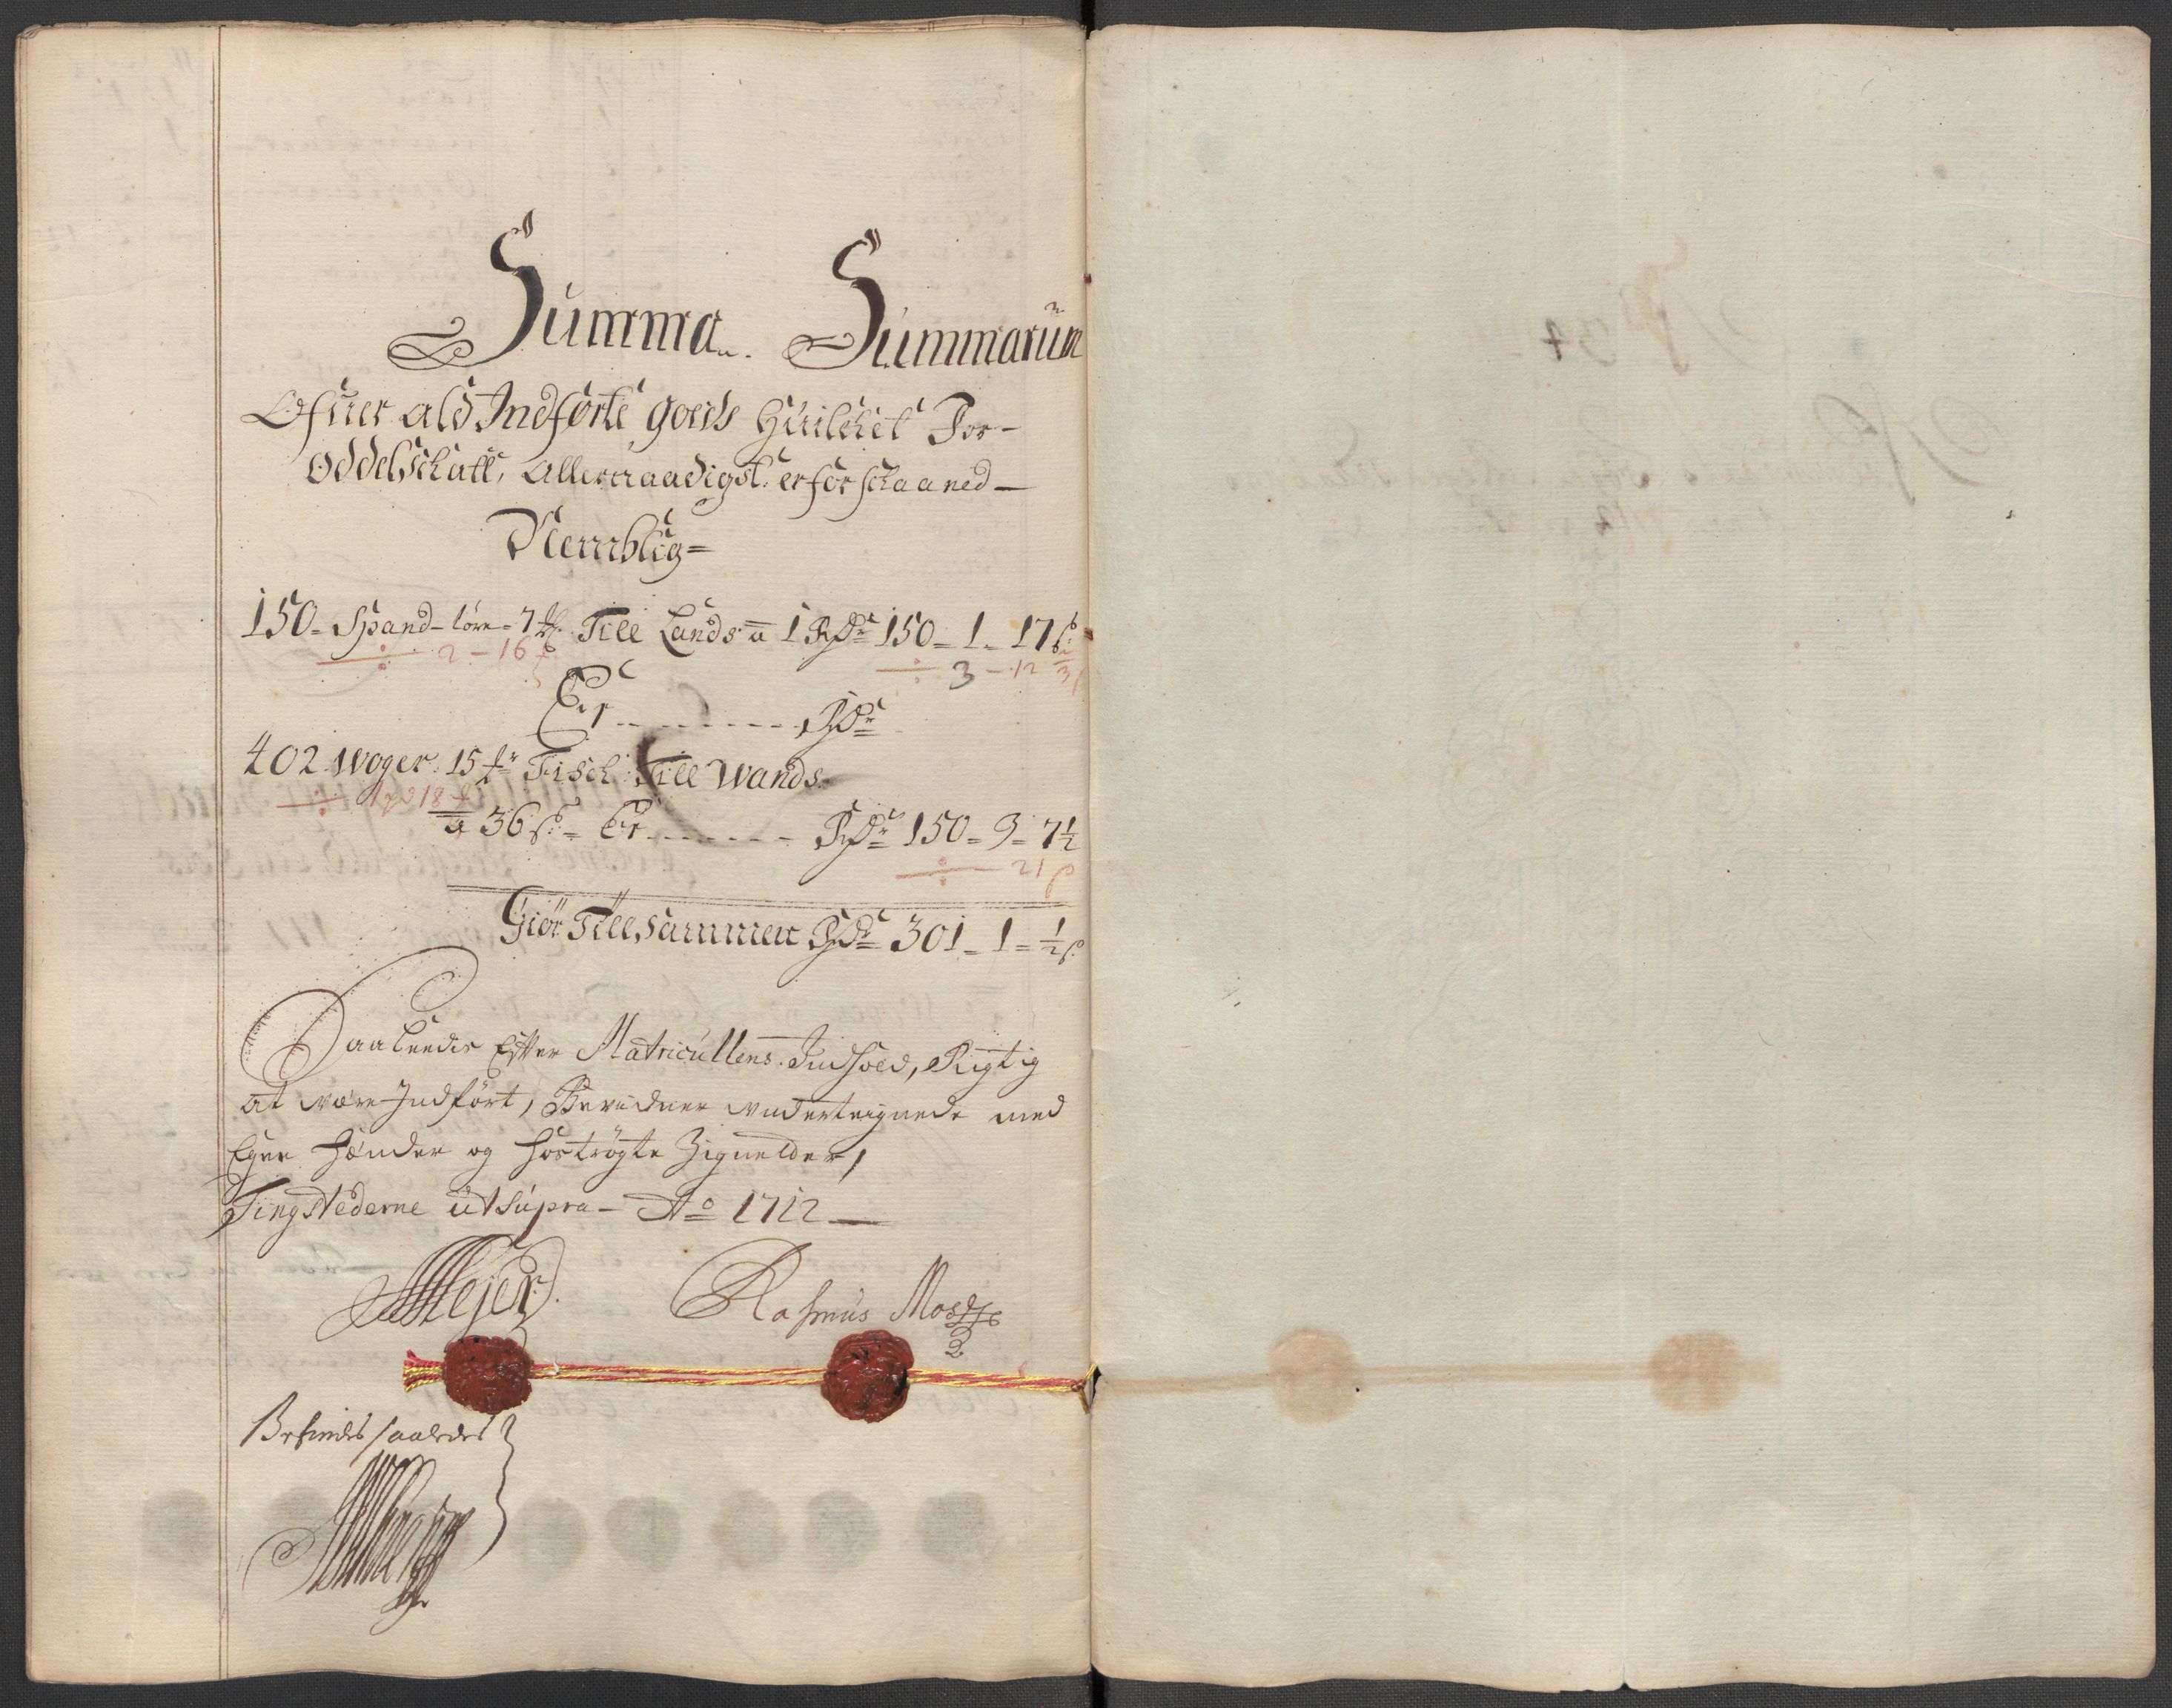 Summa Summarum
Ofver ald Indförte goeds huilchet For-
oddelschatt, Allernaadigst. er forschaaned
Nemblig=
150 - Spand - löre - 7 Till Lands a 1 Rdr 150 - 1 - 17 s
÷ 2 - 16 ÷ 3 - 12
Er - - - - - - - Rdr
402 Woger 15 Fisch Till Wands
÷ 18
a 36 s: - Er - - - - - - Rdr 150 - 3 - 7½
÷ 21
Giör Till Sammen Rdr 301 - 1 - ½ s
Saaleedis Efter Matricullens Indhold, Rigtig
at være Indfört, Bevidner underteignede med
Egne Hænder og hoströgte Zignetter,
Tingstederne ut Supra - Ao 1712
Mejer
Rasmus
Befindis saaledes